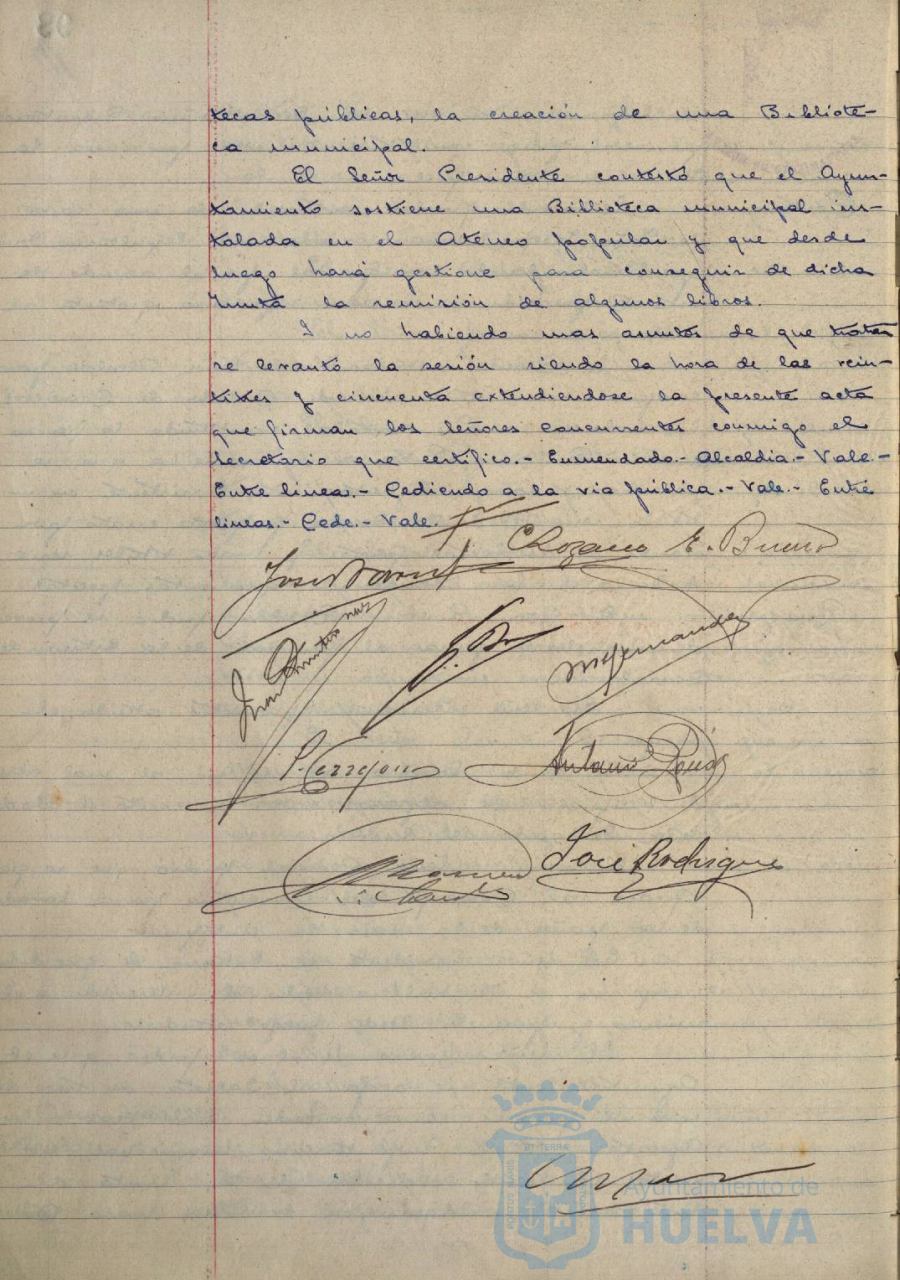 tecas públicas, la creación de una Bibliote-
ca municipal.
El Señor Presidente contestó que el Ayun-
tamiento sostiene una Biblioteca municipal ins-
talada en el Ateneo popular y que desde
luego hará gestione para conseguir de dicha
Junta la remisión de algunos libros.
I no habiendo mas asuntos de que tratar
se levantó la sesión siendo la hora de las vein-
titres y cincuenta extendiendose la presente acta
que firman los Señores concurrentes conmigo el
Secretario que certifico.- Enmendado.- Alcaldia.- Vale.-
Entre linea.- Cediendo a la via pública.- Vale.- Entre
lineas.- Cede.- Vale.
E. Bueno
José
M Hernandez
P. Cerrejon
Antonio
José Rodrigue
Ayuntamiento de
HUELVA